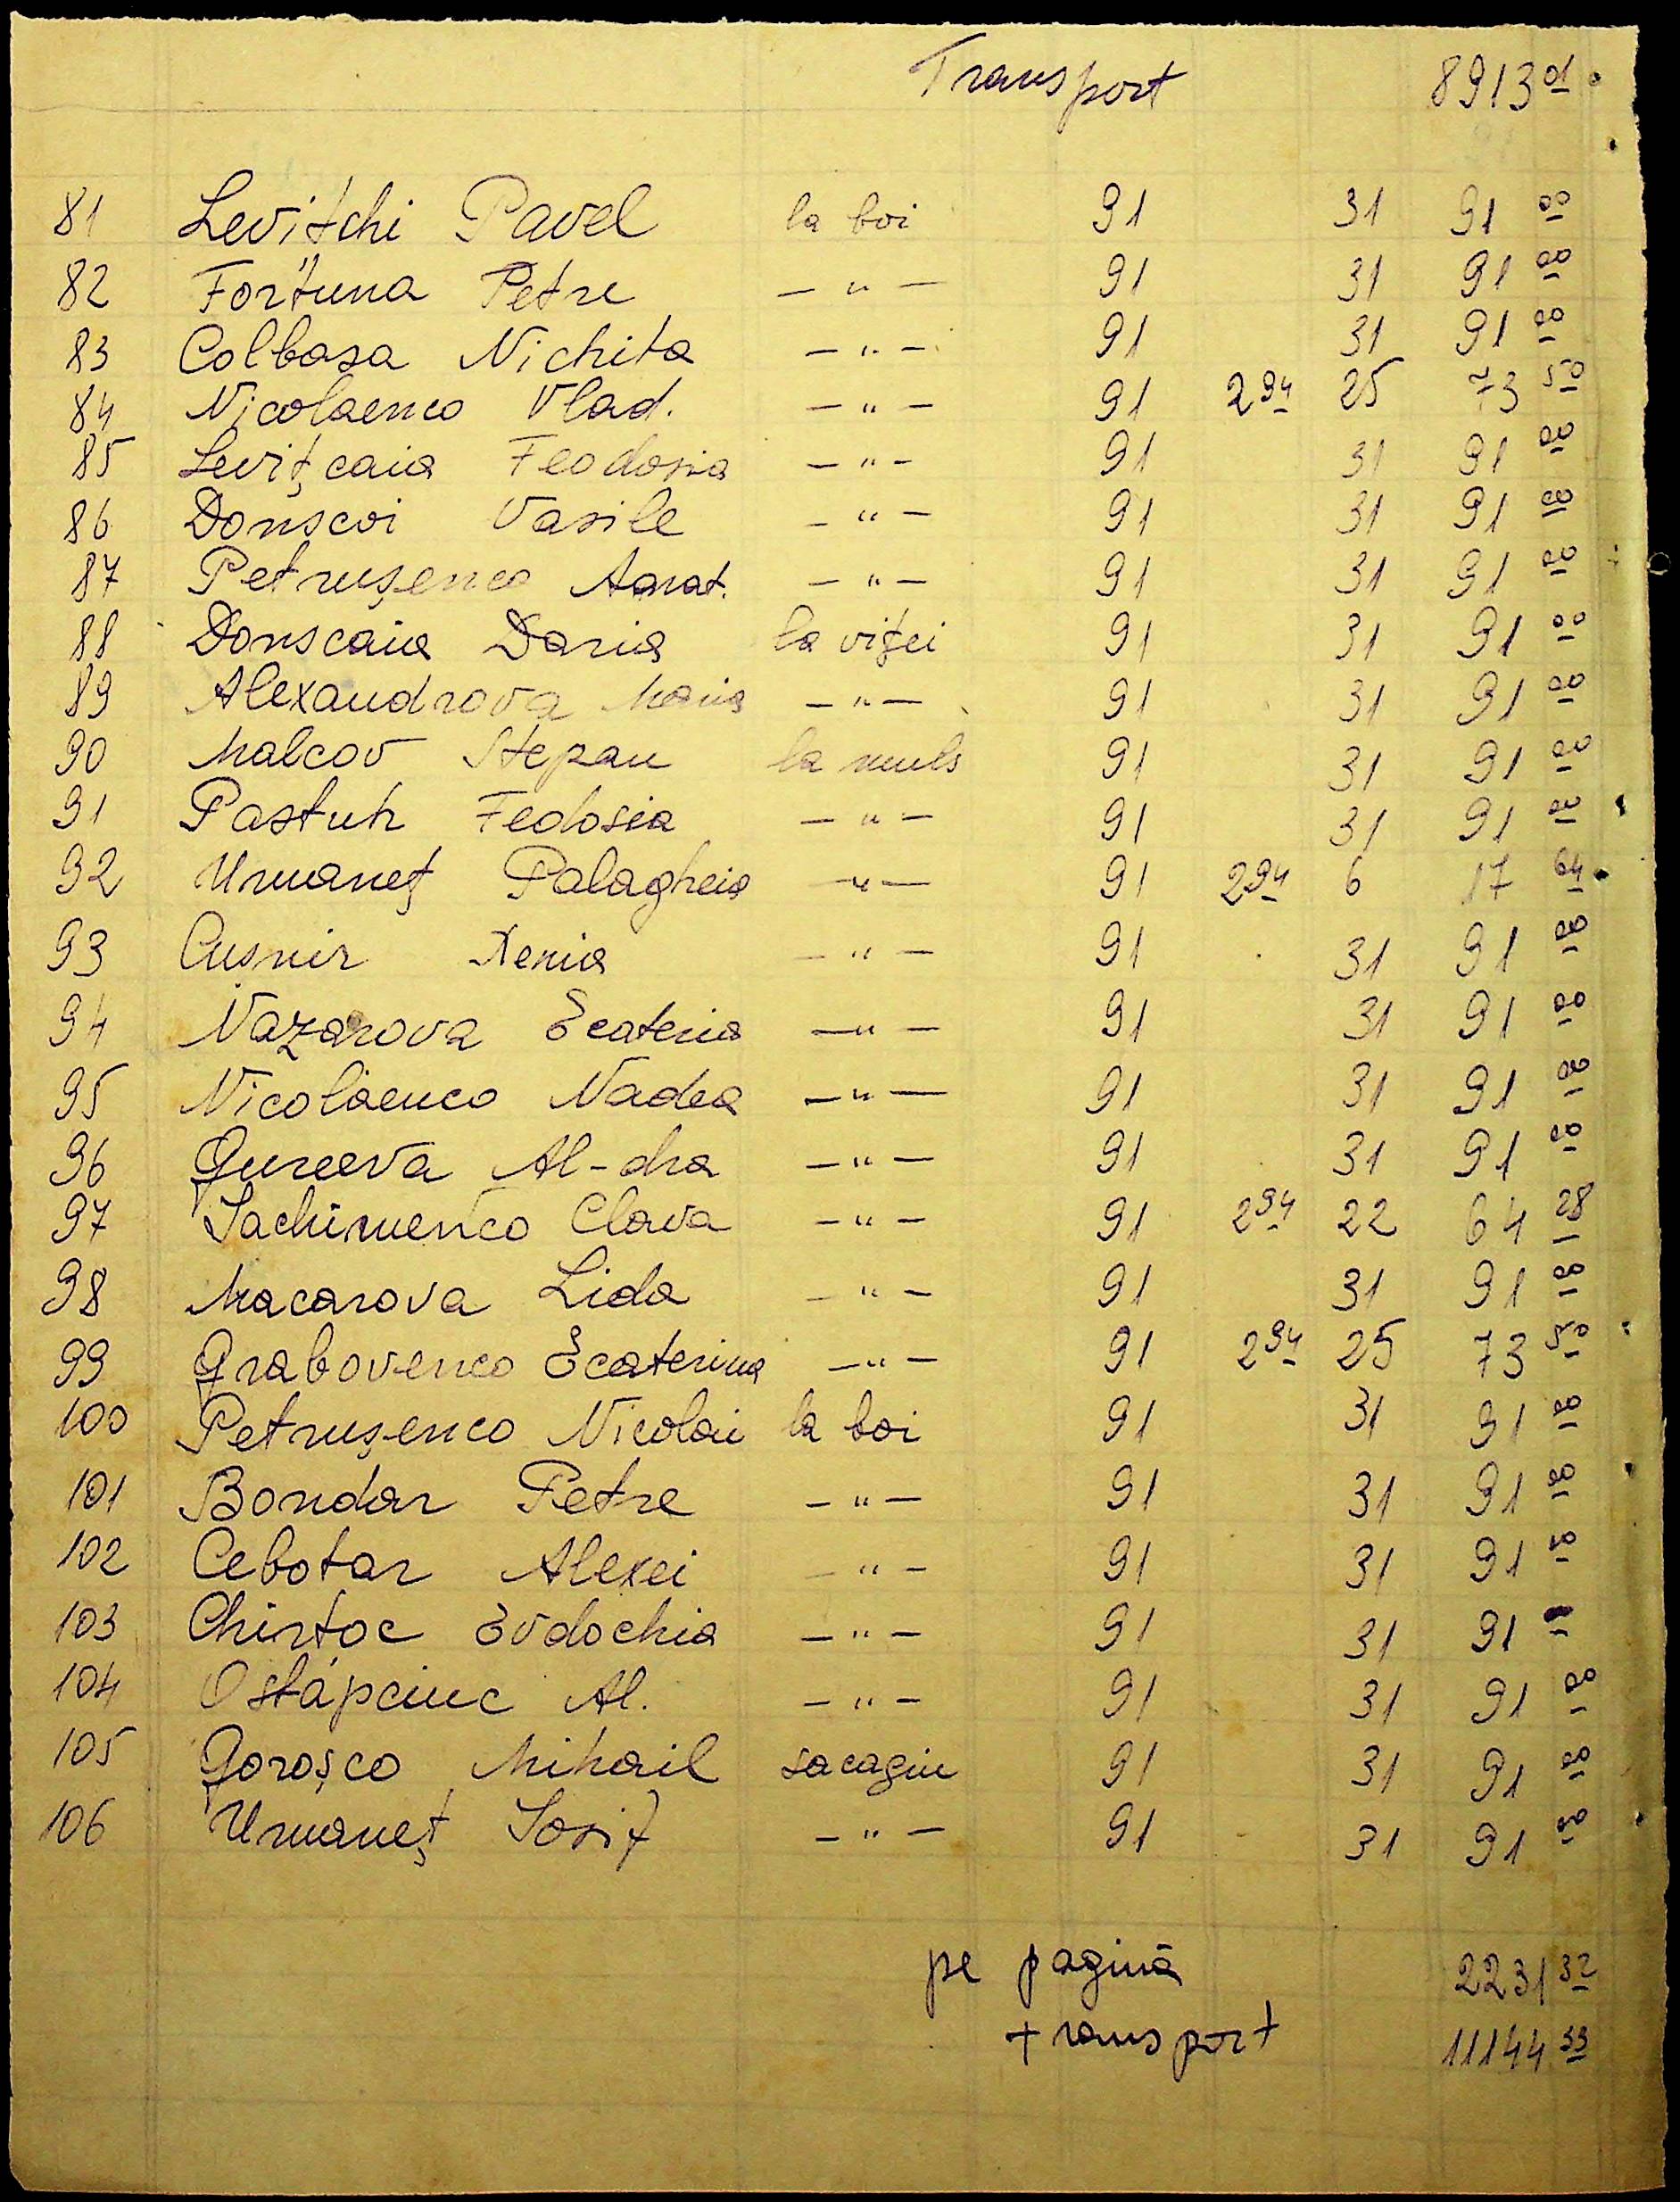 Transport 8913 01
81 Levițchi Pavel la boi 91 31 91 00
82 Fortuna Petre — " — 91 31 91 00
83 Colbasa Nichita — " — 91 31 91 00
84 Nicolaenco Vlad. — " — 91 2 94 25 73 50
85 Levițcaia Feodosia — " — 91 31 91 00
86 Donscoi Vasile — " — 91 31 91 00
87 Petrușenco Anat. — " — 91 31 91 00
88 Donscaia Daria la viței 91 31 91 00
89 Alexandrova Maria — " — 91 31 91 00
90 Malcov Stepan la muls 91 31 91 00
91 Pastuh Fedosia — " — 91 31 91 00
92 Umaneț Palagheia — " — 91 2 94 6 17 64
93 Cușnir Xenia — " — 91 31 91 00
94 Nazarova Ecateria — " — 91 31 91 00
95 Nicolaenco Nadea — " — 91 31 91 00
96 Gureeva Al-dra — " — 91 31 91 00
97 Iachimenco Clava — " — 91 2 94 22 64 28
98 Macarova Lida — " — 91 31 91 00
99 Grabovenco Ecaterina — " — 91 2 94 25 73 50
100 Petrușenco Nicolai la boi 91 31 91 00
101 Bondar Petre — " — 91 31 91 00
102 Cebotar Alexei — " — 91 31 91 00
103 Chirtoc Evdochia — " — 91 31 91
104 Ostăpciuc Al. — " — 91 31 91 00
105 Goroșco Mihail sacagiu 91 31 91 00
106 Umaneț Iosif — " — 91 31 91 00
pe pagină 2231 32
transport 11144 33